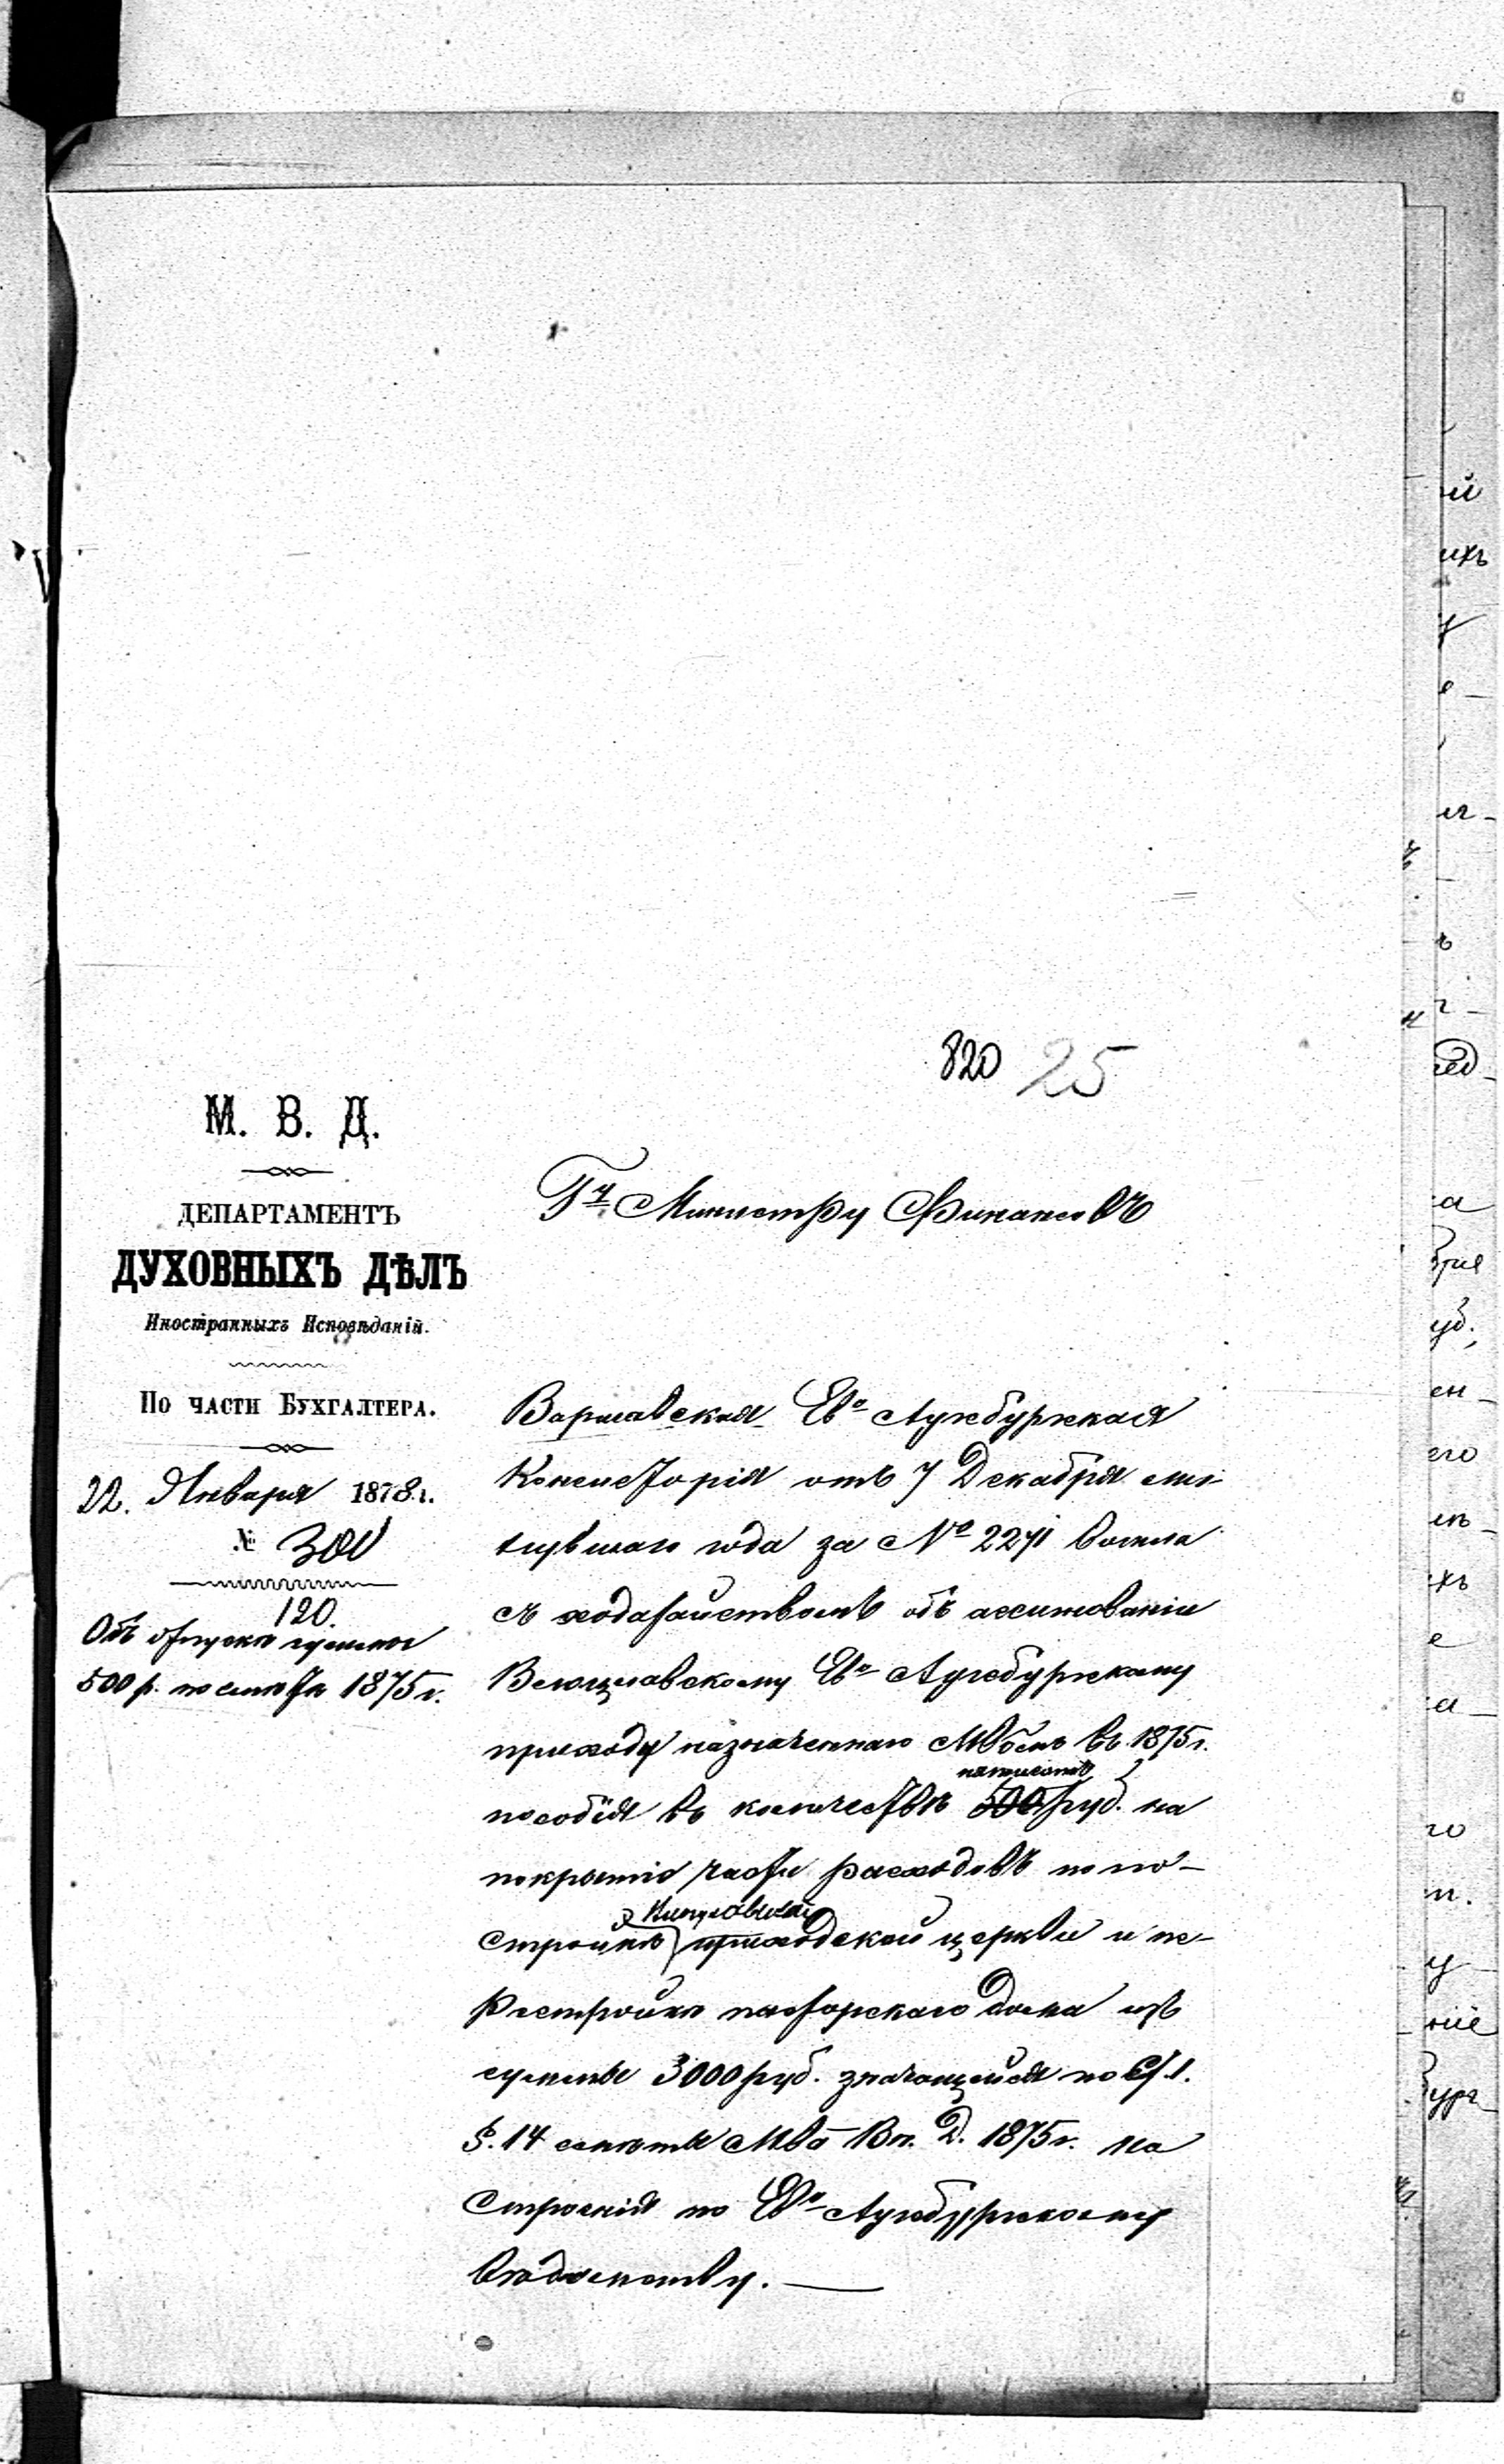 820 25
М. В. Д.
ДЕПАРТАМЕНТЪ
ДУХОВНЫХЪ ДѢЛЪ
Иностранныхъ Исповѣданій.
По части Бухгалтера.
22. Января 1878 г.
№ 300
120.
Объ отпускѣ суммы
500 р. по смѣтѣ 1875 г.
Гу Министру Финансовъ
Варшавская Ево Аугсбургская
Консисторія отъ 7 Декабря ми-
нувшаго года за № 2271 вошла
съ ходатайствомъ объ ассигнованіи
Велюнскому Ево Аугсбургскому
приходу назначеннаго Мвомъ въ 1875 г.
пятисотъ
пособія въ количествѣ 500 руб. на
покрытіе части расходовъ по по-
стройкѣ приходской церкви и пе-
рестройкѣ пасторскаго дома изъ
суммы 3000 руб. значащейся по ст. 1.
§. 14 смѣты Мва Вн. Д. 1875 г. на
строенія по Ево Аугсбургскому
вѣдомству.